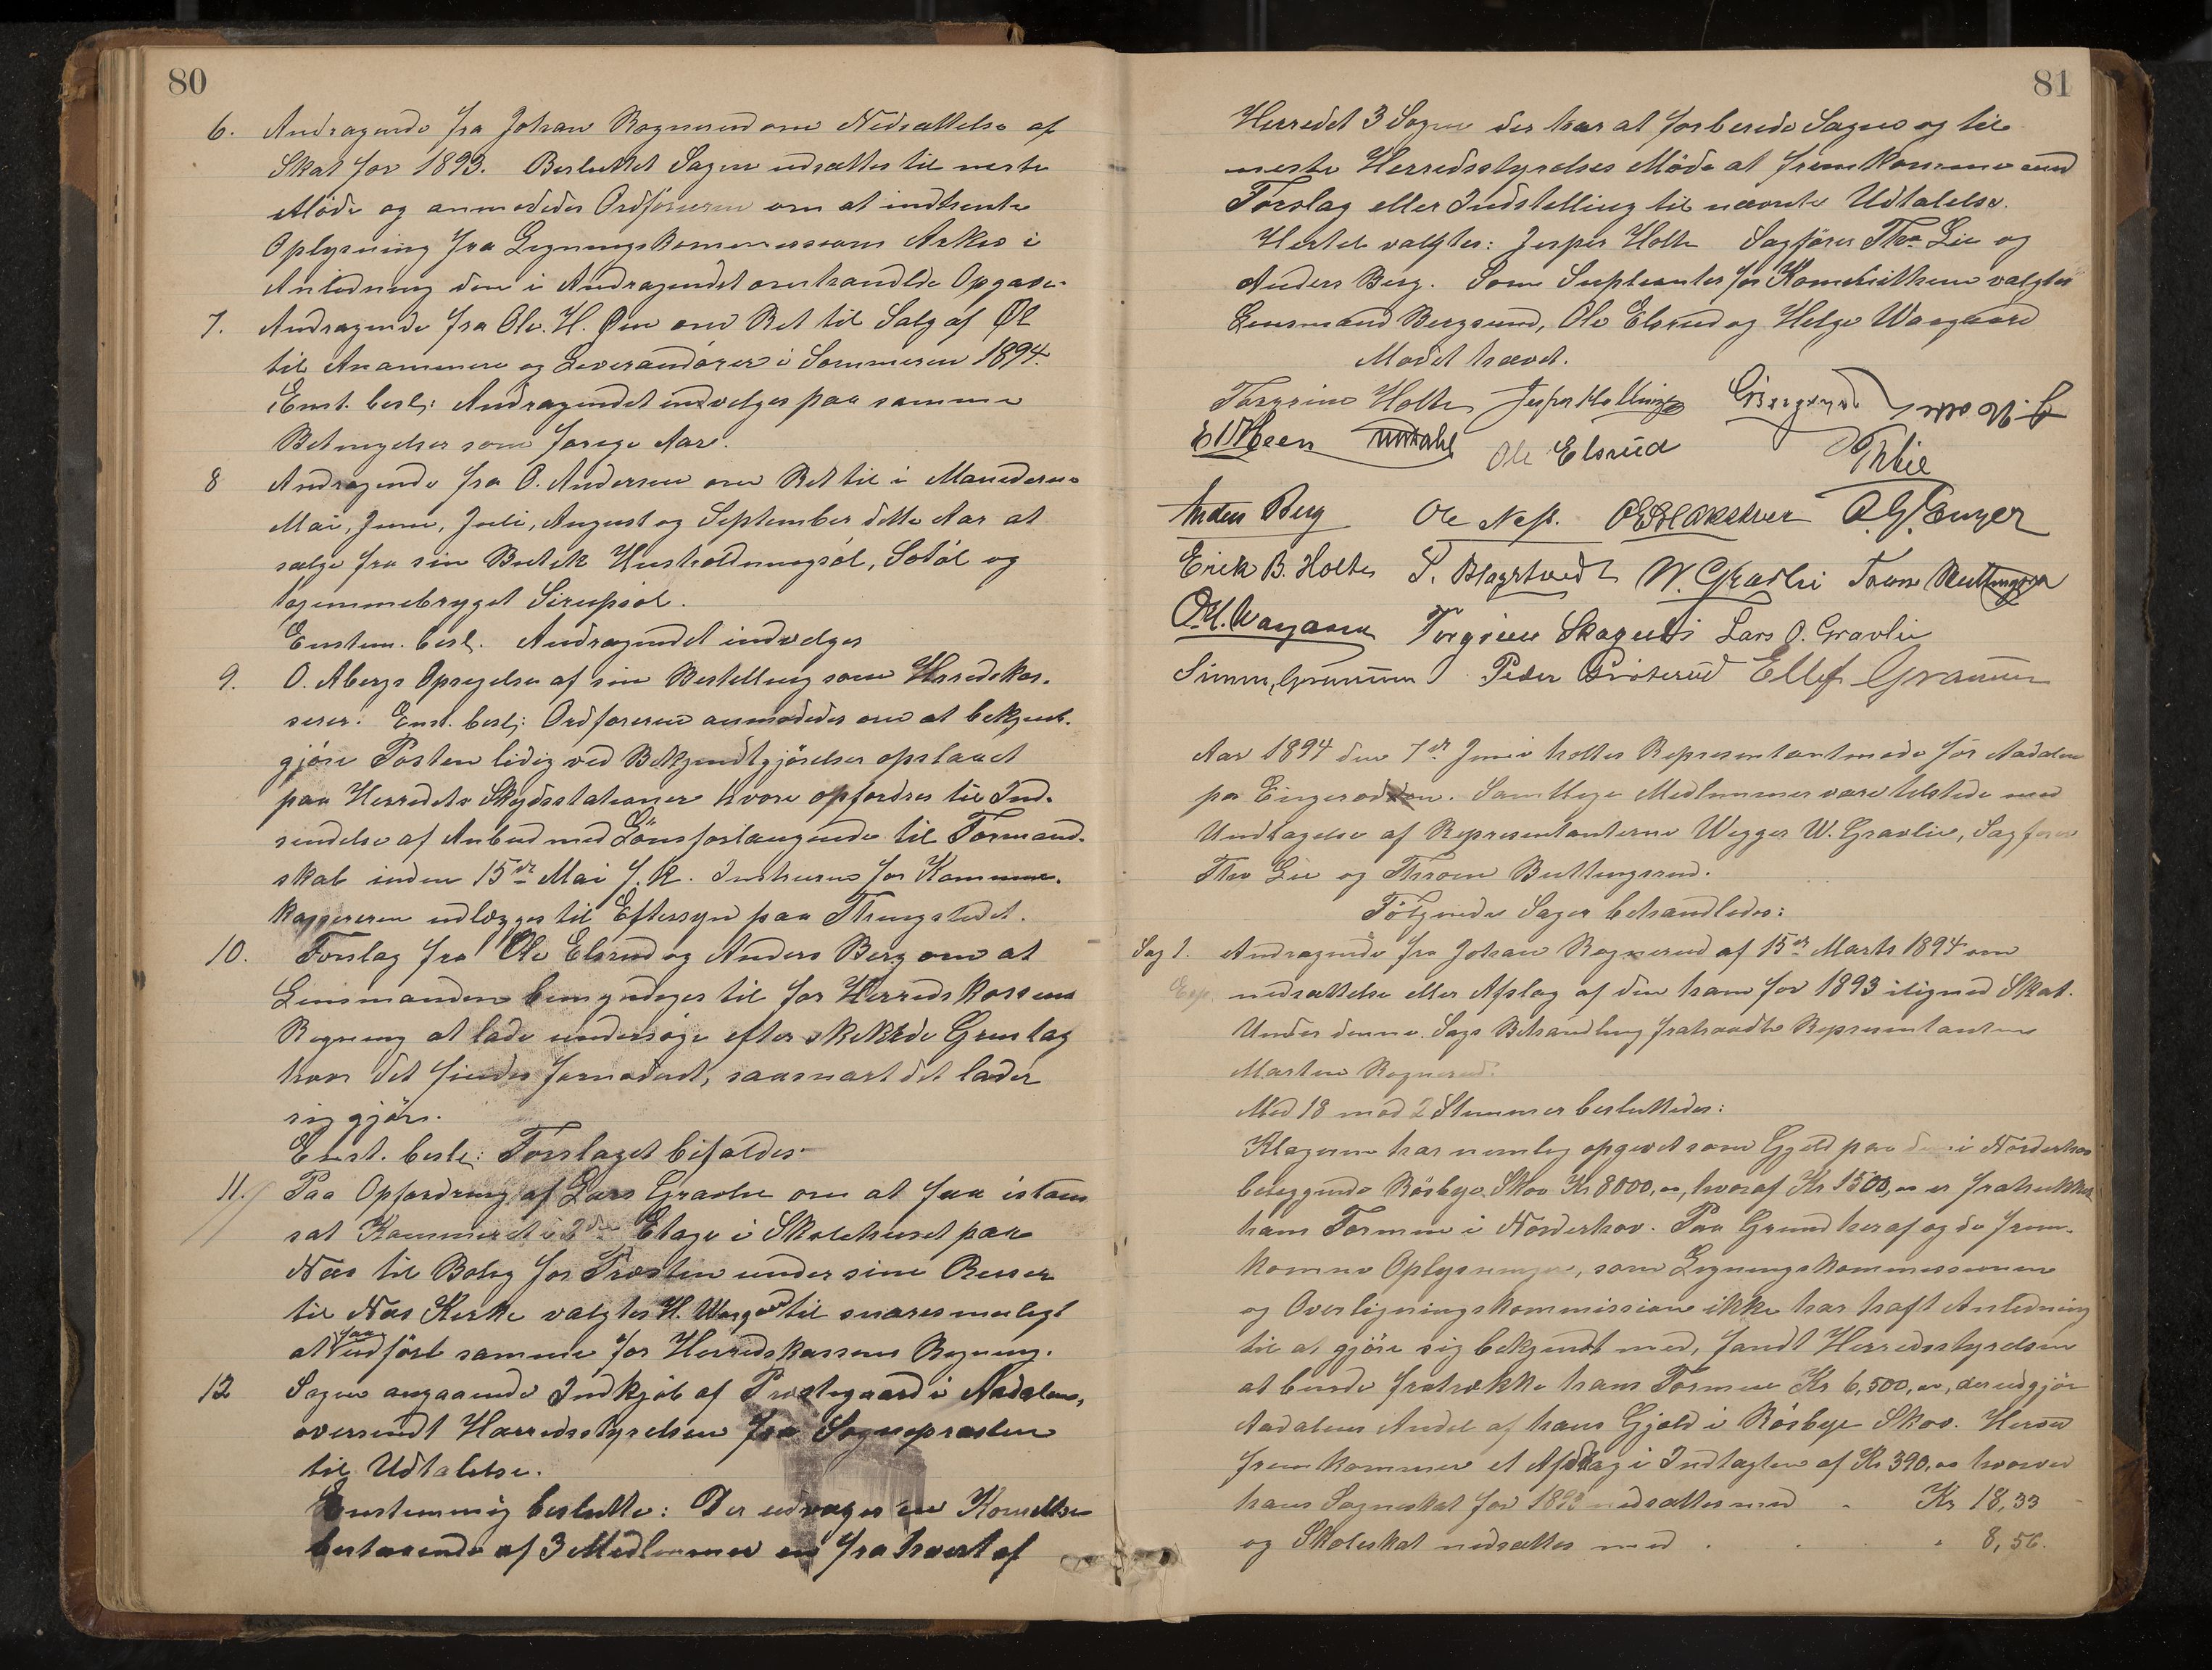 80
6. Andragende fra Johan Rognerud om Nedsættelse af
Skat for 1893. Besluttet Sagen udsættes til neste
Møde og anmodedes Ordføreren om at indhente
Oplysning fra Ligningskommissions Arkiv i
Anledning den i Andragendet omhandlede Opgave.
7. Andragende fra Ole H. Øen om Ret til Salg af Øl
til Anammere og Leverandører i Sommeren 1894.
Enst. besl: Andragendet indvelges paa samme
Betingelser som forige Aar.
8 Andragende fra O. Andersen om Ret til i Maanederne
Mai, Juni, Juli, August og September dette Aar at
selge fra sin Butik Husholdningsøl, Sødøl og
hjemmebrygget Sirupsøl.
Enstem. besl. Andragendet indvelges
9. O. Abergs Opsigelse af sin Bestilling som Herredskas-
serer. Enst. besl: Ordføreren anmodedes om at bekjendt-
gjøre Posten ledig ved Bekjendtgjørelser opslaaet
paa Herredets Skydsstationer hvore opfordres til Ind-
sendelse af Anbud med Lønsforlangende til Formand-
skab inden 15de Mai f. k. Instrux for Kommune-
kassereren udlægges til Eftersyn paa Thingstedet.
10. Forslag fra Ole Elsrud og Anders Berg om at
Lensmanden bemyndiges til for Herredskassens
Regning at lade undersøge efter skekkede Grustag
hvor det findes fornødent, saasnart det lader
sig gjøre.
Enst. besl: Forslaget bifaldes
11. Paa Opfordring af Lars Gravlie om at faa istand
sat Kammeret i 2den Etage i Skolehuset paa
Næs til Bolig for Presten under sine Reiser
til Næs Kirke valgtes H. Waagaard til snaresmuligt
at faa udført samme for Herredskassens Regning.
12 Sagen angaaende Indkjøb af Prestegaard i Aadalen,
oversendt Herredsstyrelsen fra Sognepresten
til Udtalelse.
Enstemmig besluttet: Der udvælges en Komitee
bestaaende af 3 Medlemmer en fra hvert af
81
Herredet 3 Sogne der har at forberede Sagen og til
neste Herredsstyrelses Møde at fremkomme med
Forslag eller Indstilling til nævnte Udtalelse.
Hertil valgtes: Jesper Holte Sagfører Thv. Lie og
Anders Berg. Som Supleanter for Komiteen valgtes
Lensmand Bergsund, Ole Elsrud og Helge Waagaard
Mødet hævet.
Torgrim Holte
Ole Elsrud
Anders Berg Ole Næs.
Erik B. Holte N. Gravlie
Torgrim Skagnæs Lars O. Gravlie
Peder Ellef
Aar 1894 den 7de Juni holtes Representantmøde for Aadalen
paa Ringerodden. Samtlige Medlemmer vare tilstede med
Undtagelse af Representanterne Wegger W. Gravlie, Sagfører
Thv Lie og Thron Buttingsrud.
Følgende Sager behandledes:
Sag 1. Andragende fra Johan Rognerud af 15de Marts 1894 om
Exp. nedsættelse eller Afslag af den ham for 1893 ilignede Skat.
Under denne Sags Behandling fratraadte Representanten
Marten Rognerud.
Med 18 mod 2 Stemmer besluttedes:
Klageren har nemlig opgivet som Gjeld paa den i Norderhov
beliggende Røsbye Skov Kr 8000,00, hvoraf Kr 1500,00 er fratrukket
hans Formue i Norderhov. Paa Grund heraf og de frem-
komne Oplysninger, som Ligningskommissionen
og Overligningskommission ikke har haft Anledning
til at gjøre sig bekjendt med, fandt Herredsstyrelsen
at burde fratrække hans Formue Kr 6,500,00, der udgjør
Aadalens Andel af hans Gjeld i Røsbye Skov. Herved
fremkommer et Afdrag i Indtægten af Kr 390,00 hvorved
hans Sogneskat for 1893 nedsættes med - Kr 18,33
og Skoleskat nedsættes med . . . " 8,56.